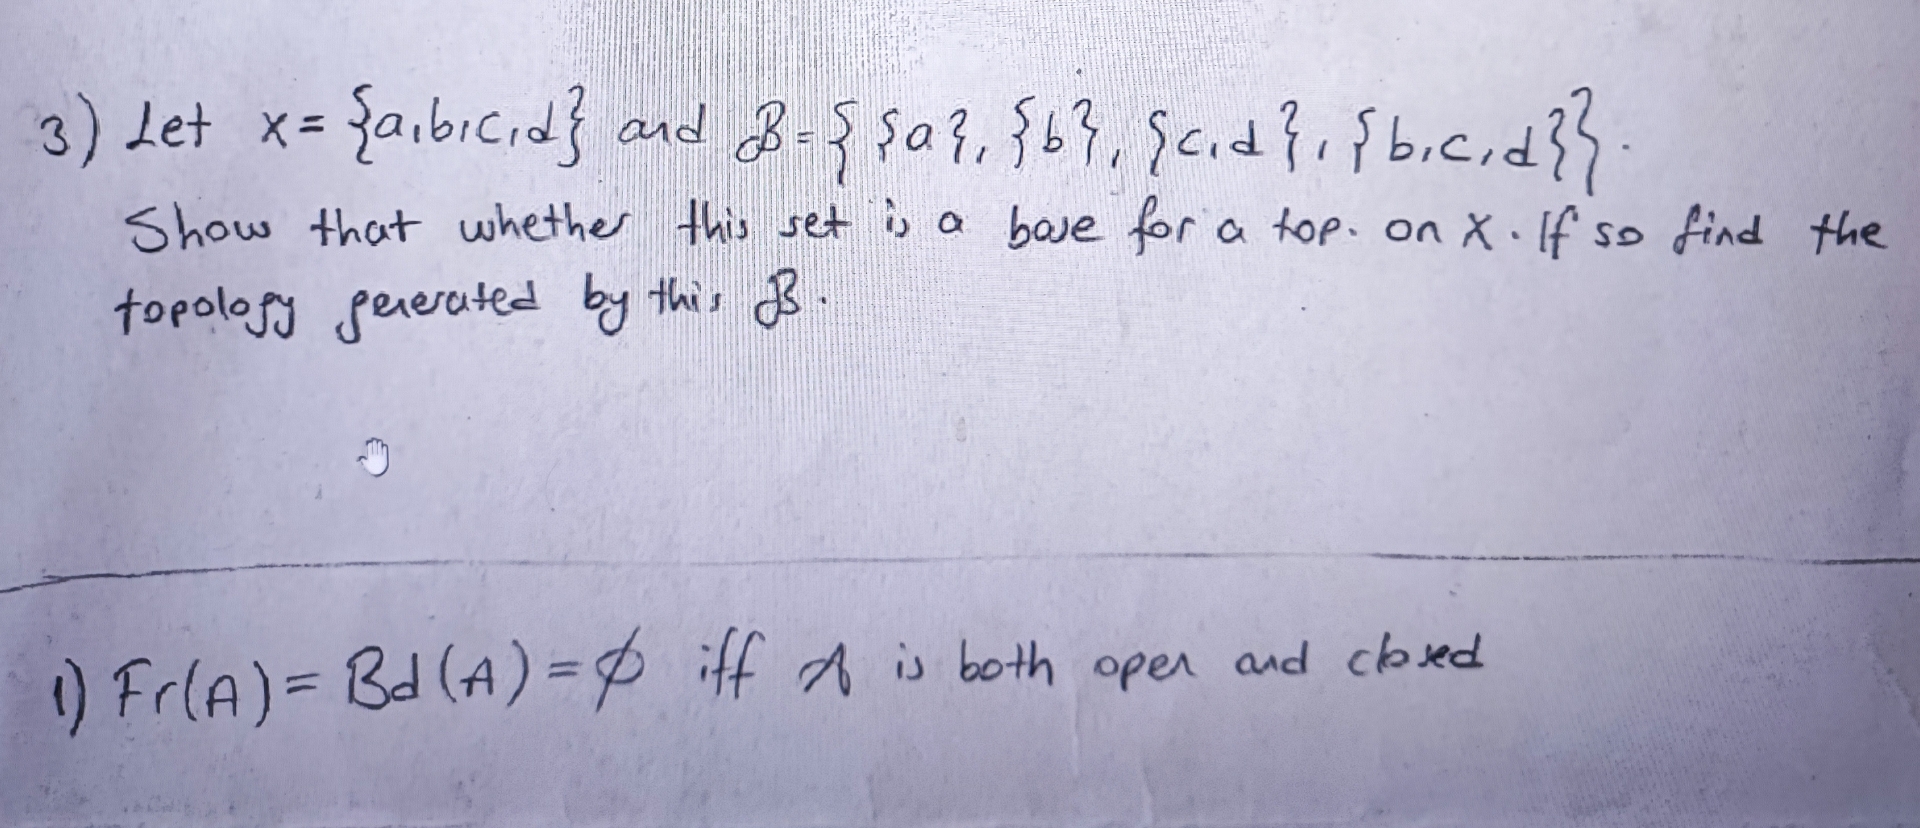 3) Let x = {a,b,c,d} and ℬ = { {a}, {b}, {c,d}, {b,c,d}}.
Show that whether this set is a base for a top. on X. If so find the
topology generated by this ℬ.
1) Fr(A) = Bd(A) = ∅ iff A is both open and closed